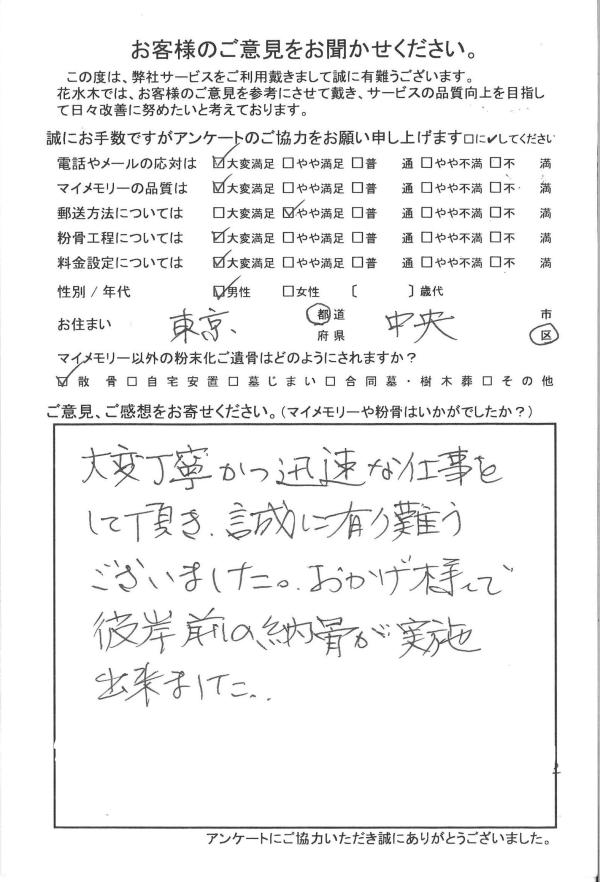 お客様のご意見をお聞かせください。
この度は、弊社サービスをご利用戴きまして誠に有難うございます。
花水木では、お客様のご意見を参考にさせて戴き、サービスの品質向上を目指し
て日々改善に努めたいと考えております。
誠にお手数ですがアンケートのご協力をお願い申し上げます□に✔してください
電話やメールの応対は ☑大変満足 □やや満足 □普 通 □やや不満 □不 満
マイメモリーの品質は ☑大変満足 □やや満足 □普 通 □やや不満 □不 満
郵送方法については □大変満足 ☑やや満足 □普 通 □やや不満 □不 満
粉骨工程については ☑大変満足 □やや満足 □普 通 □やや不満 □不 満
料金設定については ☑大変満足 □やや満足 □普 通 □やや不満 □不 満
性別 / 年代 ☑男性 □女性 〔 〕歳代
お住まい 東京 都道府県 中央 市区
マイメモリー以外の粉末化ご遺骨はどのようにされますか？
☑散 骨 □自宅安置 □墓じまい □合同墓・樹木葬 □その他
ご意見、ご感想をお寄せください。(マイメモリーや粉骨はいかがでしたか？)
大変丁寧かつ迅速な仕事を
して頂き、誠に有り難う
ございました。おかげ様で
彼岸前の納骨が実施
出来ました。
アンケートにご協力いただき誠にありがとうございました。